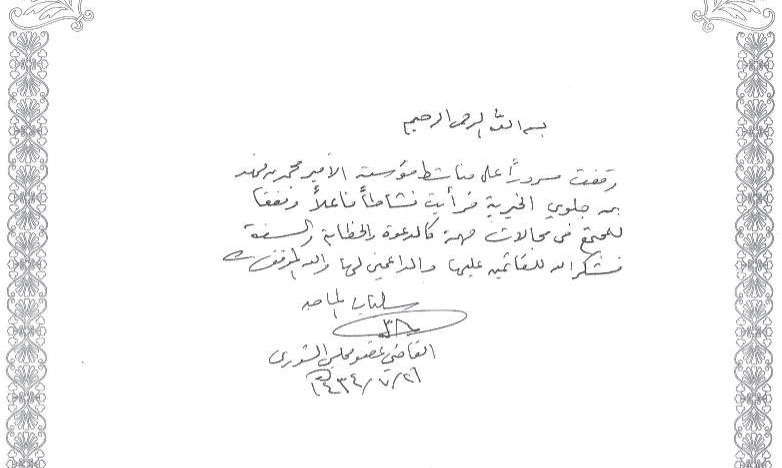 بسم الله الرحمن الرحيم
وقفت مسروراً على مناشط مؤسسة الأمير محمد بن فهد
بن جلوي الخيرية فرأيت نشاطاً فاعلاً ونفعا
للمجتمع في مجالات مهمة كالدعوة والخطابة
فشكر الله للقائمين عليها والداعمين لها والله الموفق
سليمان الماجد
القاضي عضو مجلس الشورى
٢١/٧/١٤٣٤هـ